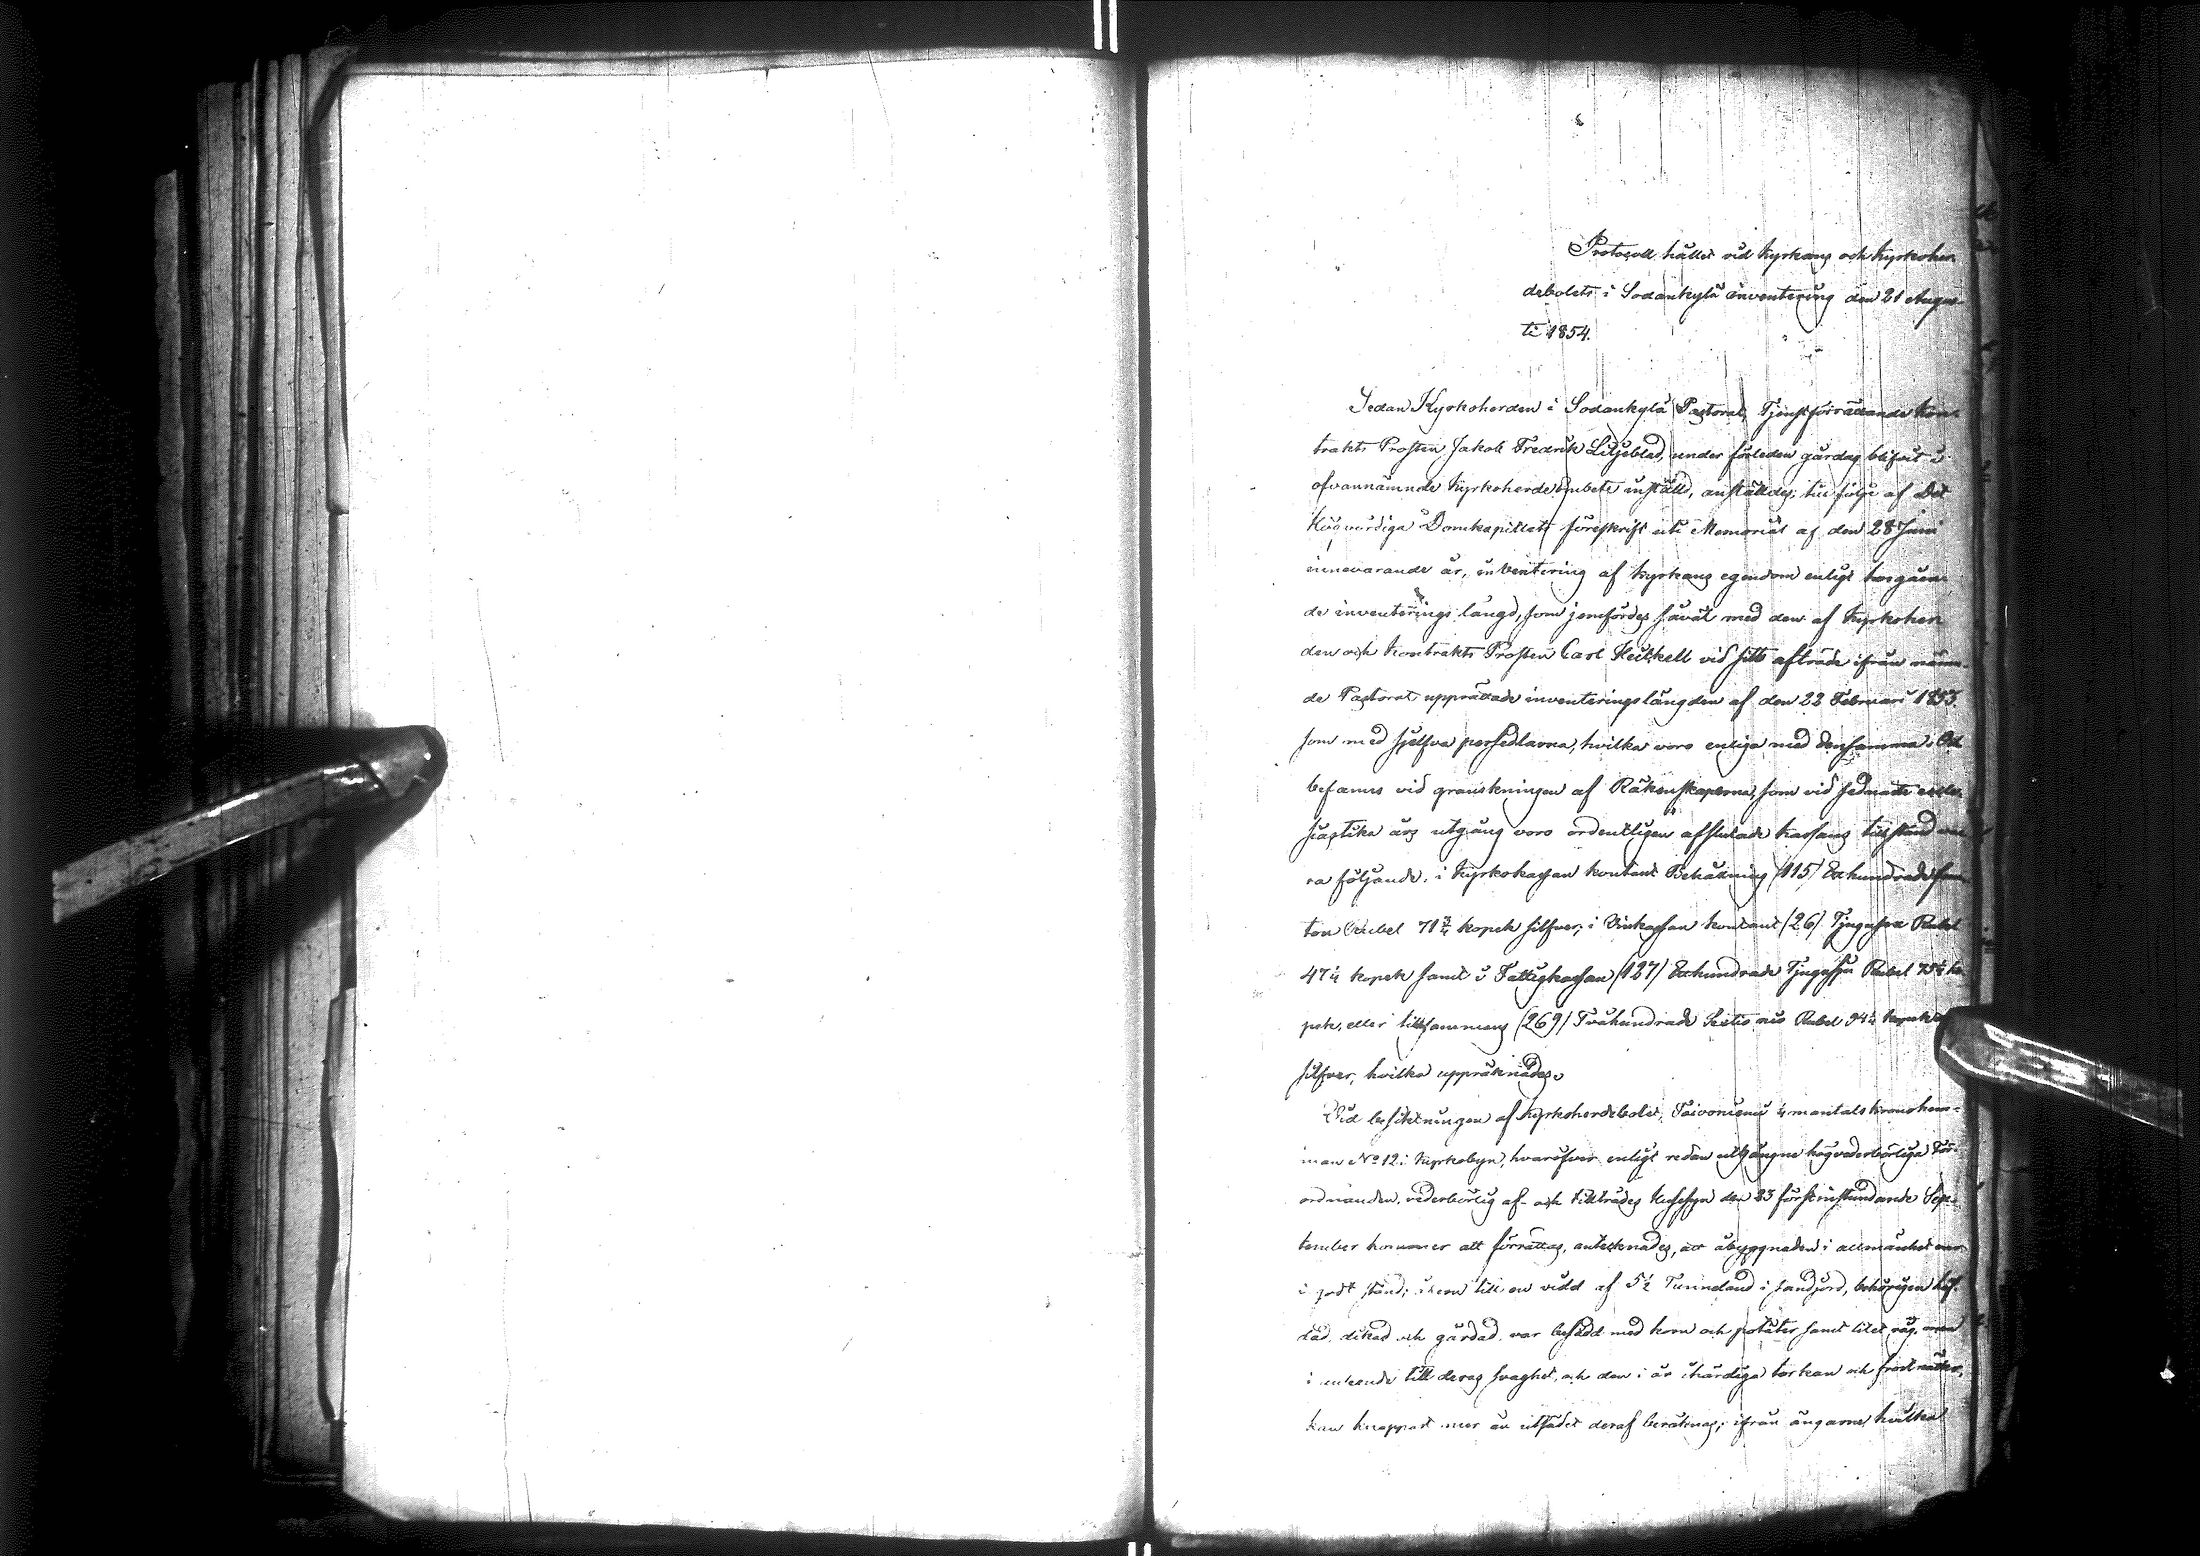 Protocoll, hållet vid Kyrkans och Kyrkoher
debolets i Sodankylä inventering den 21 Augus
ti 1854.
Sedan Kyrkoherden i Sodankylä Pastorat, Tjenstförrättande Kon
trakts Prosten Jakob Fredrik Liljeblad, under förleden gårdag blifvit i
ofvannämnde Kyrkoherdeembete inställd, anställdes, till följe af Det
Högvördiga Domkapitlets föreskrift uti Memorial af den 28 Juni
innevarande år, inventering af Kyrkans egendom enligt
de inventerings längd, som jemfördes såväl med den af Kyrkoher
den och Kontrakts Prosten Carl Heikell vid sitt afträde ifrån nämn
de Pastorat upprättade inventeringslängden af den 22 Februari 1853.
som med sjelfva persedlarna, hvilka voro enliga med densamma. Och
befanns vid granskningen af Räkenskaperna, som vid sednaste eccle
siastika års utgång voro ordentligen afslutade kassans tillstånd va
ra följande: i Kyrkokassan kontant Behållning (115) Etthundradefem
ton Rubel 71 3/4 kopek silfver; i Vinkassan kontant (26) Tjugusex Rubel
47 1/4 kopek samt i Fattigkassan (127) Etthundrade Tjugusju Rubel 75 1/4 ko
pek, eller tillsammans (269) Tvåhundrade Sextio nio Rubel 94 1/4 kopek
silfver, hvilka uppräknades.
Vid besiktningen af Kyrkoherdebolet, Toivoniemi 1/4 mantals kronohem-
man No 12 i Kyrkobyn, hvaröfver enligt redan utgångne högvederbörliga För-
ordnanden, vederbörlig af- och tillträdes Husesyn den 23 förstinstundande Sep-
tember kommer att förrättas, antecknades, att åbyggnaden i allmänhet var
i godt stånd; åkern till en vidd af 5 1/2 Tunneland i sandjord, behörigen häf-
dad, dikad och gärdad, var besådd med korn och potäter samt litet råg, men
i anseende till deras svaghet, och den i år ihärdiga torkan och frostnätter,
kan knappast mer än utsädet deraf beräknas; ifrån ängarne, hvilka